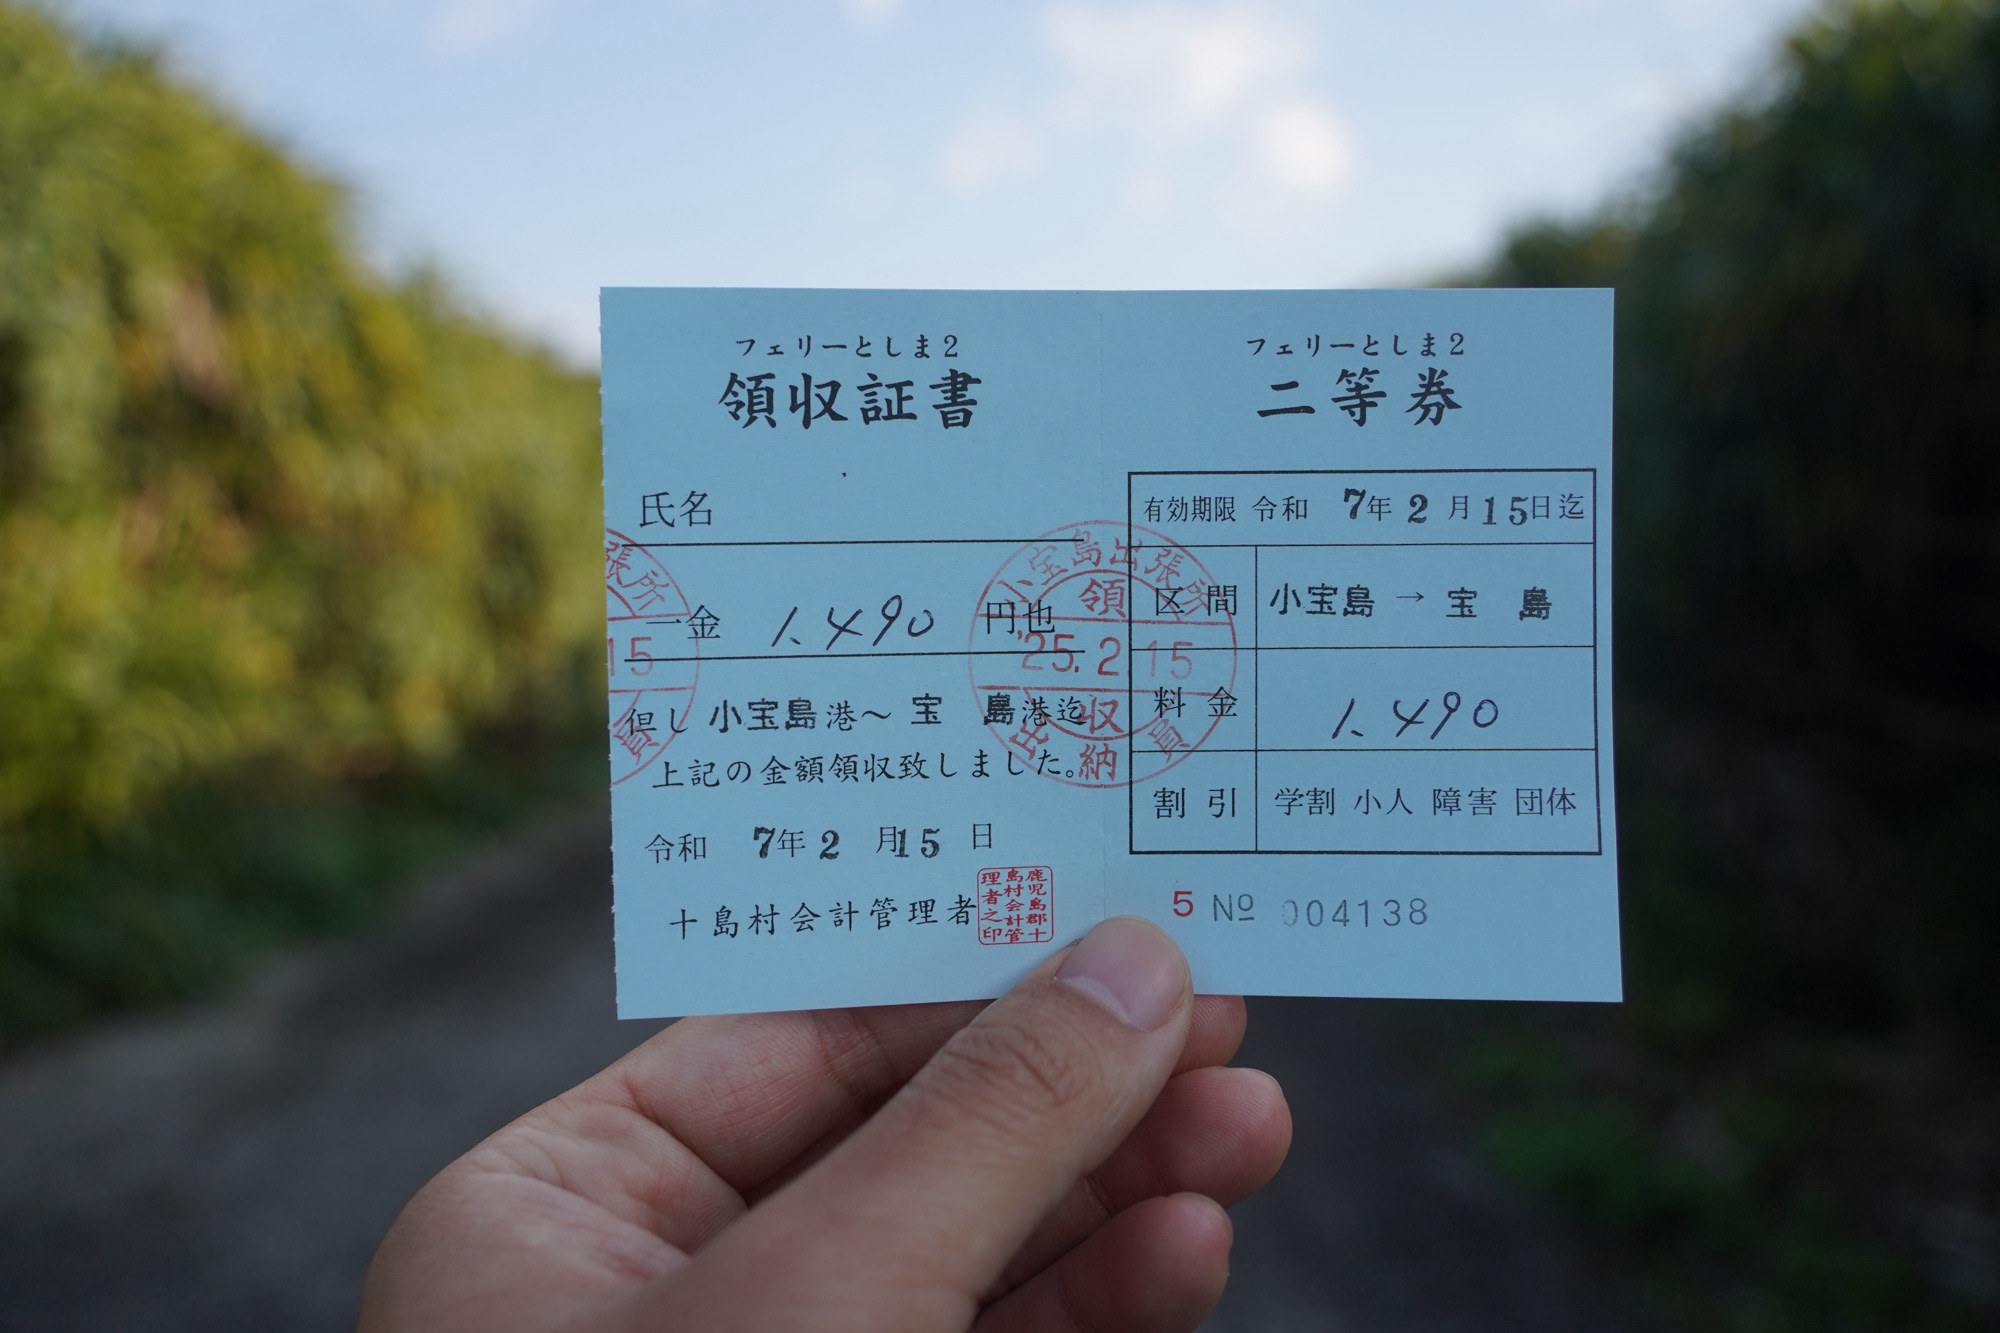 フェリーとしま2
領収証書
氏名
一金 1.490 円也
但し 小宝島港〜 宝 島港迄
上記の金額領収致しました。
令和 7年 2 月15 日
十島村会計管理者
鹿児島郡十
島村会計管
理者之印
張所
15
員
小宝島出張所
領
'25.2.15
収
納
員
フェリーとしま2
二等券
有効期限 令和 7年 2 月 15日迄
区間 小宝島 → 宝 島
料金 1.490
割引 学割 小人 障害 団体
5 № 004138